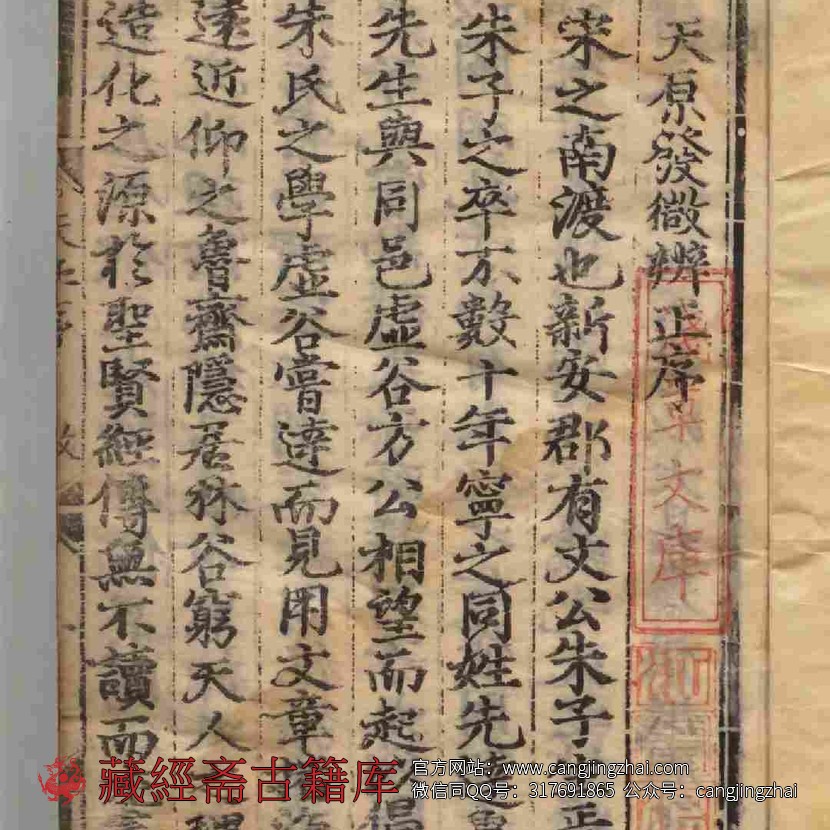 天原發微辨正序
宋之南渡也新安郡有文公朱子
朱子之卒不數十年寧之同姓先
先生與同邑虛谷方公相望而起
朱氏之學虛谷嘗達而見用文章
遠近仰之魯齋隱居林谷窮天人
造化之源於聖賢經傳無不讀而
文庫
藏經斋古籍库
官方网站：www.cangjingzhai.com
微信同QQ号：317691865 公众号：cangjingzhai